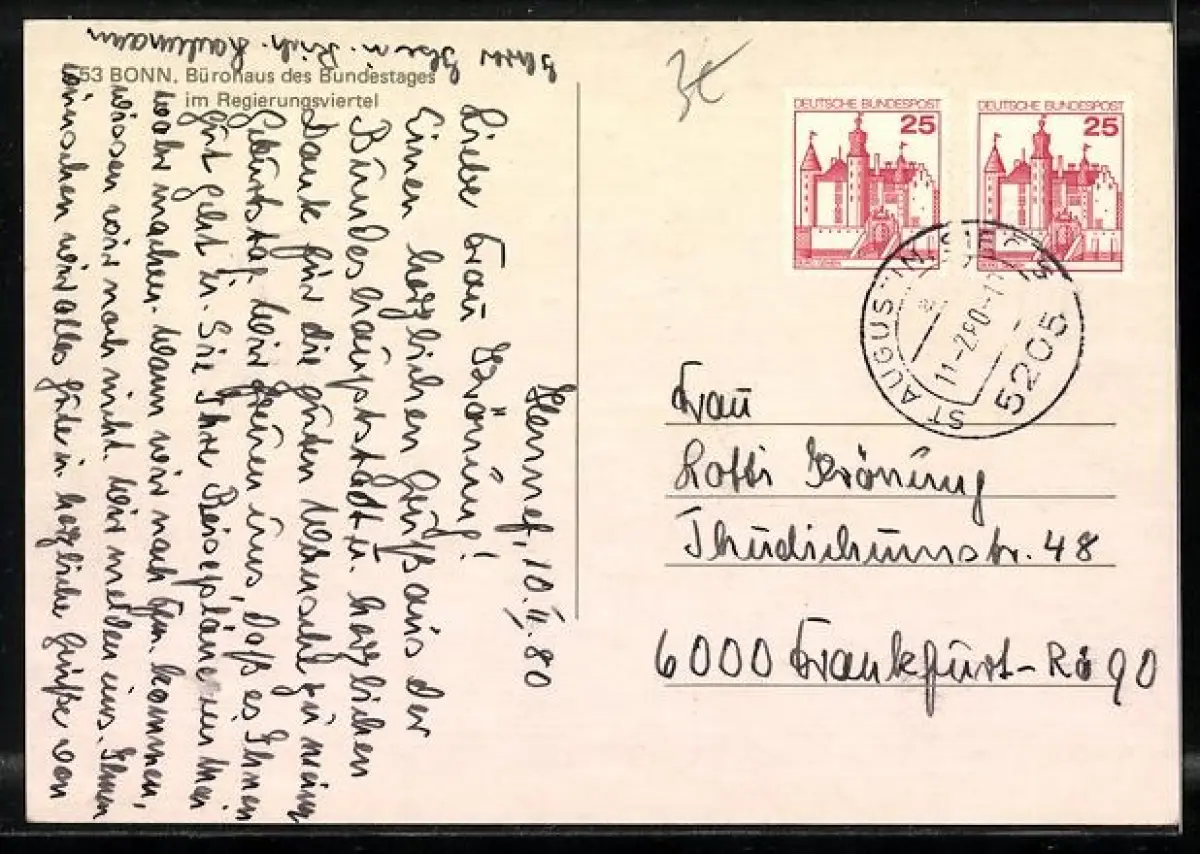 53 BONN, Bürohaus des Bundestages
im Regierungsviertel
3€
Hennef, 10.II.80
Liebe Frau Krönung!
Einen herzlichen Gruß aus der
Bundeshauptstadt u. herzlichen
Dank für die guten Wünsche zu meinem
Geburtstag. Wir freuen uns, daß es Ihnen
gut geht u. Sie Ihre Reisepläne im Mai
wahr machen. Wann wir nach kommen,
wissen wir noch nicht. Wir melden uns. Ihnen
wünschen wir alles Gute u. herzliche Grüße von
Ihren u. Rich.
DEUTSCHE BUNDESPOST
25
DEUTSCHE BUNDESPOST
25
ST AUGUSTIN
11-2.80-17
5205
Frau
Lotti Krönung
Thudichumstr. 48
6000 Frankfurt-Rö 90